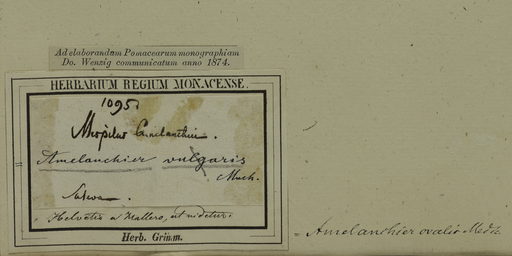 Ad elaborandam Pomacearum monographiam
Do. Wenzig communicatum anno 1874.
HERBARIUM REGIUM MONACENSE.
1095.
Mespilus Amelanchier.
Amelanchier vulgaris
Mnch.
Helvetia a Hallero, ut videtur.
Herb. Grimm.
= Amelanchier ovalis Medik.